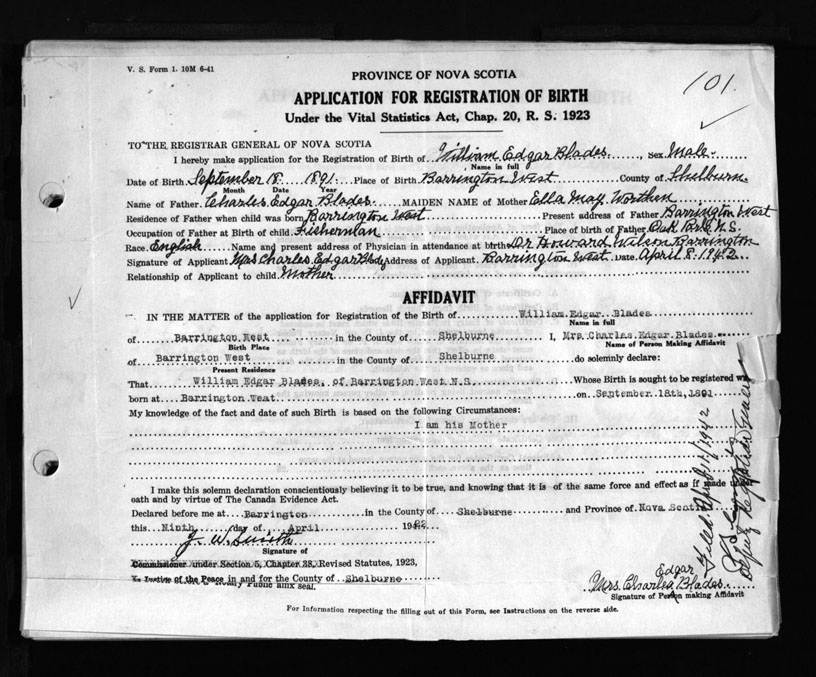 V. S. Form 1. 10M 6-41
101.
PROVINCE OF NOVA SCOTIA
APPLICATION FOR REGISTRATION OF BIRTH
Under the Vital Statistics Act, Chap. 20, R. S. 1923
TO THE REGISTRAR GENERAL OF NOVA SCOTIA
I hereby make application for the Registration of Birth of William Edgar Blades, Sex Male
Name in full
Date of Birth September 18 1891 Place of Birth Barrington West County of Shelburn
Month Date Year
Name of Father Charles Edgar Blades MAIDEN NAME of Mother Ella May Worthen
Residence of Father when child was born Barrington West Present address of Father Barrington West
Occupation of Father at Birth of child Fisherman Place of birth of Father Oak Pk N.S.
Race English Name and present address of Physician in attendance at birth Dr Howard Wilson Barrington
Signature of Applicant Mrs Charles Edgar Blades Address of Applicant Barrington West Date April 8. 1942
Relationship of Applicant to child Mother
AFFIDAVIT
IN THE MATTER of the application for Registration of the Birth of William Edgar Blades
Name in full
of Barrington West in the County of Shelburne I, Mrs. Charles Edgar Blades
Birth Place Name of Person Making Affidavit
of Barrington West in the County of Shelburne do solemnly declare:
Present Residence
That William Edgar Blades, of Barrington West N.S. Whose Birth is sought to be registered was
born at Barrington West on September 18th, 1891
My knowledge of the fact and date of such Birth is based on the following Circumstances:
I am his Mother
I make this solemn declaration conscientiously believing it to be true, and knowing that it is of the same force and effect as if made under
oath and by virtue of The Canada Evidence Act.
Declared before me at Barrington in the County of Shelburne and Province of Nova Scotia
this Ninth day of April 1942
J. W. Smith
Signature of
Commissioner under Section 5, Chapter 38, Revised Statutes, 1923,
Justice of the Peace in and for the County of Shelburne
Notary Public affix seal.
Edgar
Mrs. Charles Blades
Signature of Person making Affidavit
For Information respecting the filling out of this Form, see Instructions on the reverse side.
Filed April 1942
Deputy Registrar General